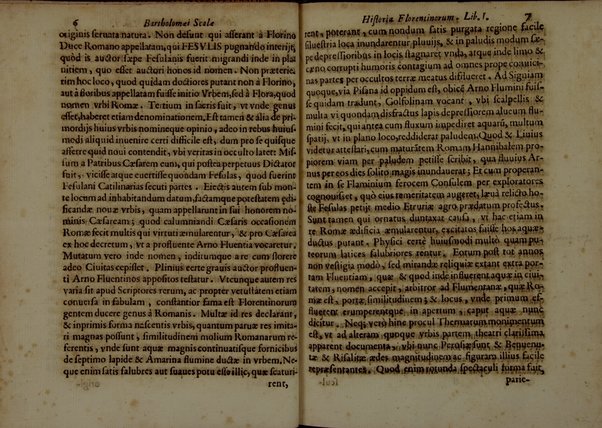 6 Bartholomei Scalæ
originis seruata natura. Non desunt qui asserant à Florino
Duce Romano appellatam, qui FESVLIS pugnando interijt,
quòd is auctor sæpe Fesulanis fuerit migrandi inde in pla
nitiem, quo esset auctori honos id nomen. Non præterie,
rim hoc loco, quod quidam doctiores putant non à Florino,
aut à floribus appellatam fuisse initio Vrbem, sed à Flora, quod
nomen vrbi Romæ. Tertium in sacris fuit, vt vnde genus
esset, haberet etiam denominationem. Est tamen & alia de pri
mordijs huius vrbis nomineque opinio, adeo in rebus huius-
modi aliquid inuenire certi difficile est, dum pro se quisque
asserre quid noui contendit, vbi veritas in occulto latet: Mis
sum a Patribus Cæsarem eunt, qui postea perpetuus Dictator
fuit, vicisse atque euertisse quondam Fesulas, quod fuerint
Fesulani Catilinarias secuti partes. Eiectis autem sub mon-
te locum ad inhabitandum datum, factamque potestatem ædi-
ficandæ nouæ vrbis, quam appellarunt in sui honorem nomi-
nis Cæsaream; quod calumniandi Cæsaris occasionem
Romæ fecit multis qui virtuti æmularentur, & pro Cæsarea
ex hoc decretum, vt a prosuente Arno Fluentia vocaretur.
Mutatum vero inde nomen, inditumque a re cum florere
adeo Ciuitas cepisset. Plinius certe grauis auctor profluen-
ti Arno Fluentinos appositos testatur. Vtcunque autem res
varia sit apud Scriptores rerum, ac propter vetustatem etiam
conuersa in fabulam, constantior fama est Florentinorum
gentem ducere genus à Romanis. Multæ id res declarant,
& inprimis forma nascentis vrbis, quantum paruæ res imita-
ri magnas possunt, similitudinem molium Romanarum re-
ferentis, vnde sunt aquæ magnis continuatisque fornicibus
de septimo lapide & Amarina flumine ductæ in vrbem. Ne-
que enim satis salubres aut suaues potu esse illic, quæ scaturi-
rent,
Historiæ Florentinorum. Lib. I. 7
rent, poterant, cum nondum satis purgata regione facile
siluestria loca inundarentur pluuijs, & in paludis modum sæ-
pe depressioribus in locis stagnaret vnda, atque inde limo &
cœno corrupti humores contagium ad omnes prope coquici-
nas partes per occultos terræ meatus diffluerent. Ad Signiam
quoque, via Pisana id oppidum est, obicē Arno Flumini fuis-
se quidam tradunt, Golfolinam vocant, vbi scalpellis &
multa vi quondam disfractus lapis depressiorem alueum flu-
mini fecit, qui antea cum fluxum impediret aquarū, multum
spatij vt in plano loco, redderet paludem. Quod & Liuius
videtur asserere, cum maturātem Romam Hannibalem pro-
piorem viam per paludem petisse scribit, qua fluuius Ar-
nus per eos dies solito magis inundauerat; Et cum properan-
tem in se Flaminium ferocem Consulem per exploratores
cognouisset, quò eius temeritatem augeret, læua relicto ho-
ste Fesulas petijt medio Etruriæ agro prædatum profectus.
Sunt tamen qui ornatus duntaxat causa, vt hac etiam in
re Romæ ædificia æmularentur, excitatos fuisse hos aquæ-
ductus putant. Physici certè huiusmodi multo quam pu-
teorum latices salubriores rentur. Eorum post tot annos
non vestigia modo, sed mirandæ reliquiæ extant extra por-
tam Fluentiam, quæ & quod inde influerent aquæ in ciui-
tatem, nomen accepit, arbitror ad Flumentanæ, quæ Ro-
mæ est, portæ similitudinem; & locus, vnde primum ef-
fluerent erumperentque, in apertum, caput aquæ nunc
dicitur. Neq; vero hinc procul Thermarum monimentum
est, vt ad alteram quoque vrbis partem theatri clarissima
apparent documenta, vbi nunc Perusinæ sunt & Benuenu-
tæ & Risalitæ ædes magnitudinem ac figuram illius facile
repræsentantes. Quod enim rotunda spectaculi forma fuit,
parie-